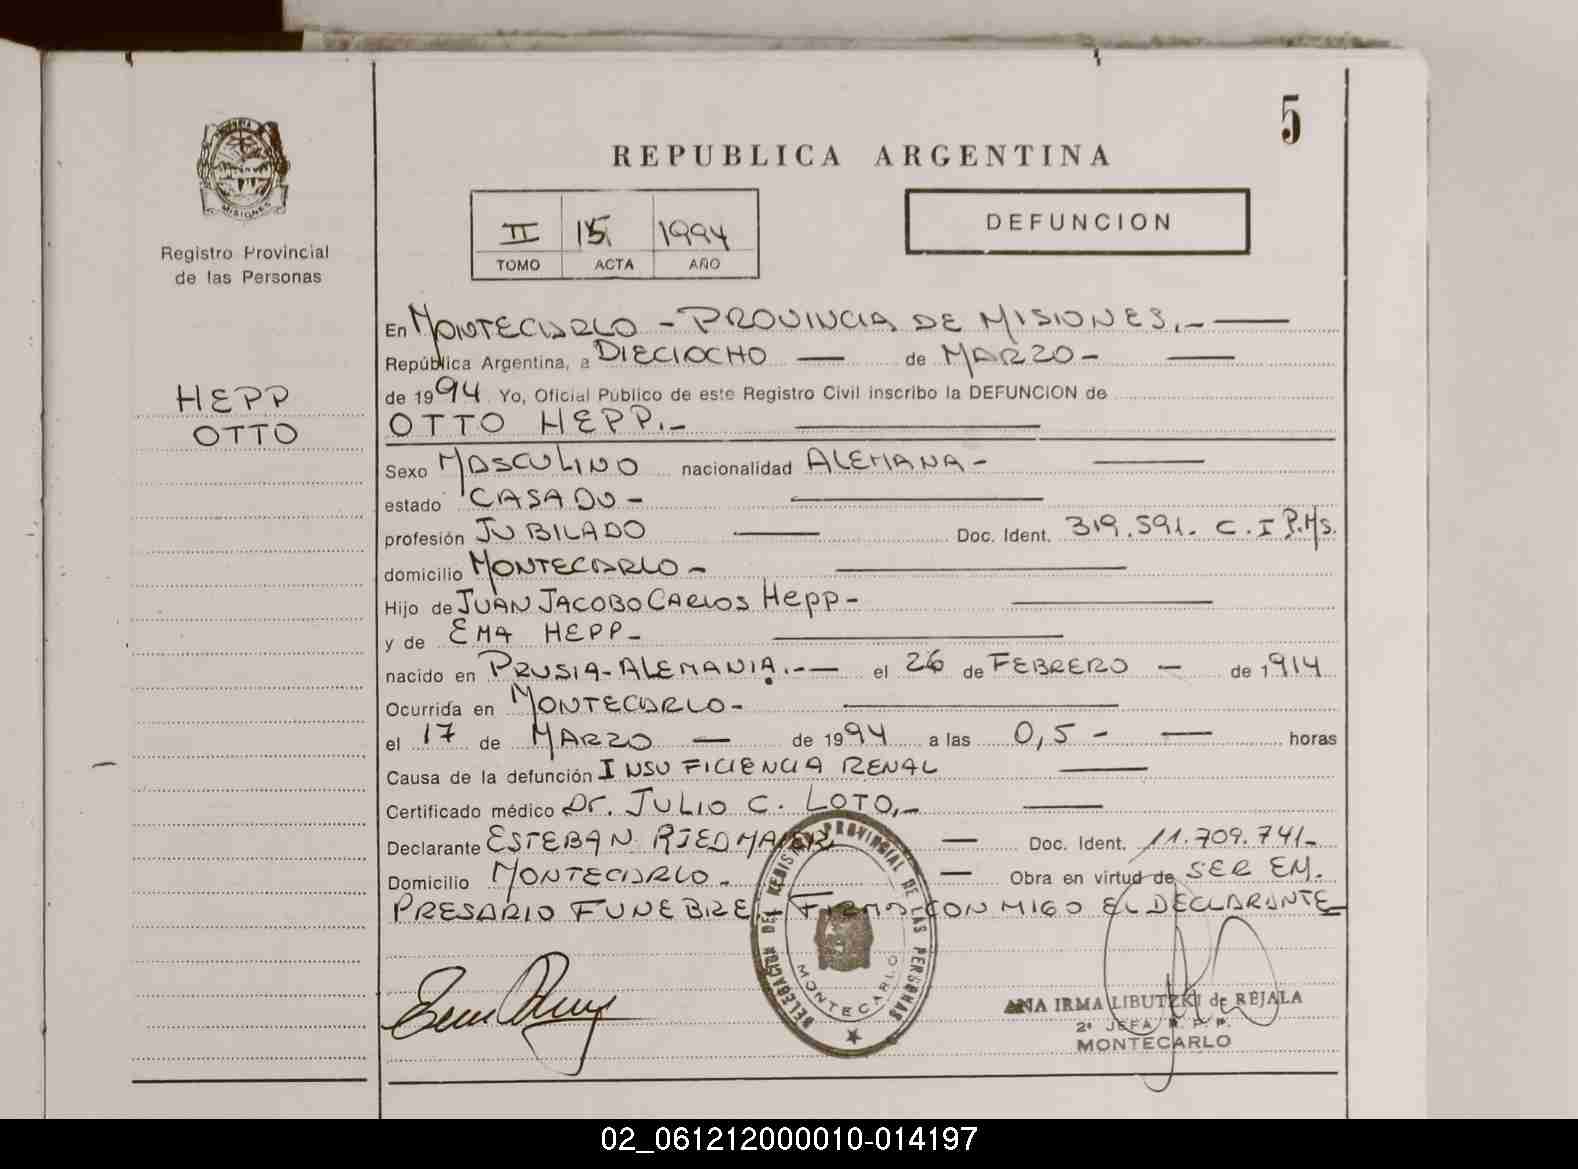 5
REPUBLICA ARGENTINA
II 15 1994
TOMO ACTA AÑO
DEFUNCION
MISIONES
Registro Provincial
de las Personas
HEPP
OTTO
En MONTECARLO - PROVINCIA DE MISIONES.-
República Argentina, a DIECIOCHO de MARZO-
de 1994 Yo, Oficial Público de este Registro Civil inscribo la DEFUNCION de
OTTO HEPP.-
Sexo MASCULINO nacionalidad ALEMANA-
estado CASADO-
profesión JUBILADO Doc. Ident. 319.591. C.I P.Ms.
domicilio MONTECARLO-
Hijo de JUAN JACOBO CARLOS Hepp-
y de EMA HEPP-
nacido en PRUSIA-ALEMANIA.- el 26 de FEBRERO - de 1914
Ocurrida en MONTECARLO-
el 17 de MARZO de 1994 a las 0,5 - horas
Causa de la defunción INSUFICIENCIA RENAL
Certificado médico Dr. JULIO C. LOTO.-
Declarante ESTEBAN RIEDMAIER Doc. Ident. 11.709.741-
Domicilio MONTECARLO. Obra en virtud de SER EM.
PRESARIO FUNEBRE - FIRMA CON MIGO EL DECLARANTE
DELEGACION DEL REGISTRO PROVINCIAL DE LAS PERSONAS
MONTECARLO
ANA IRMA LIBUTZKI de REJALA
2ª JEFA R. P. P.
MONTECARLO
02_061212000010-014197